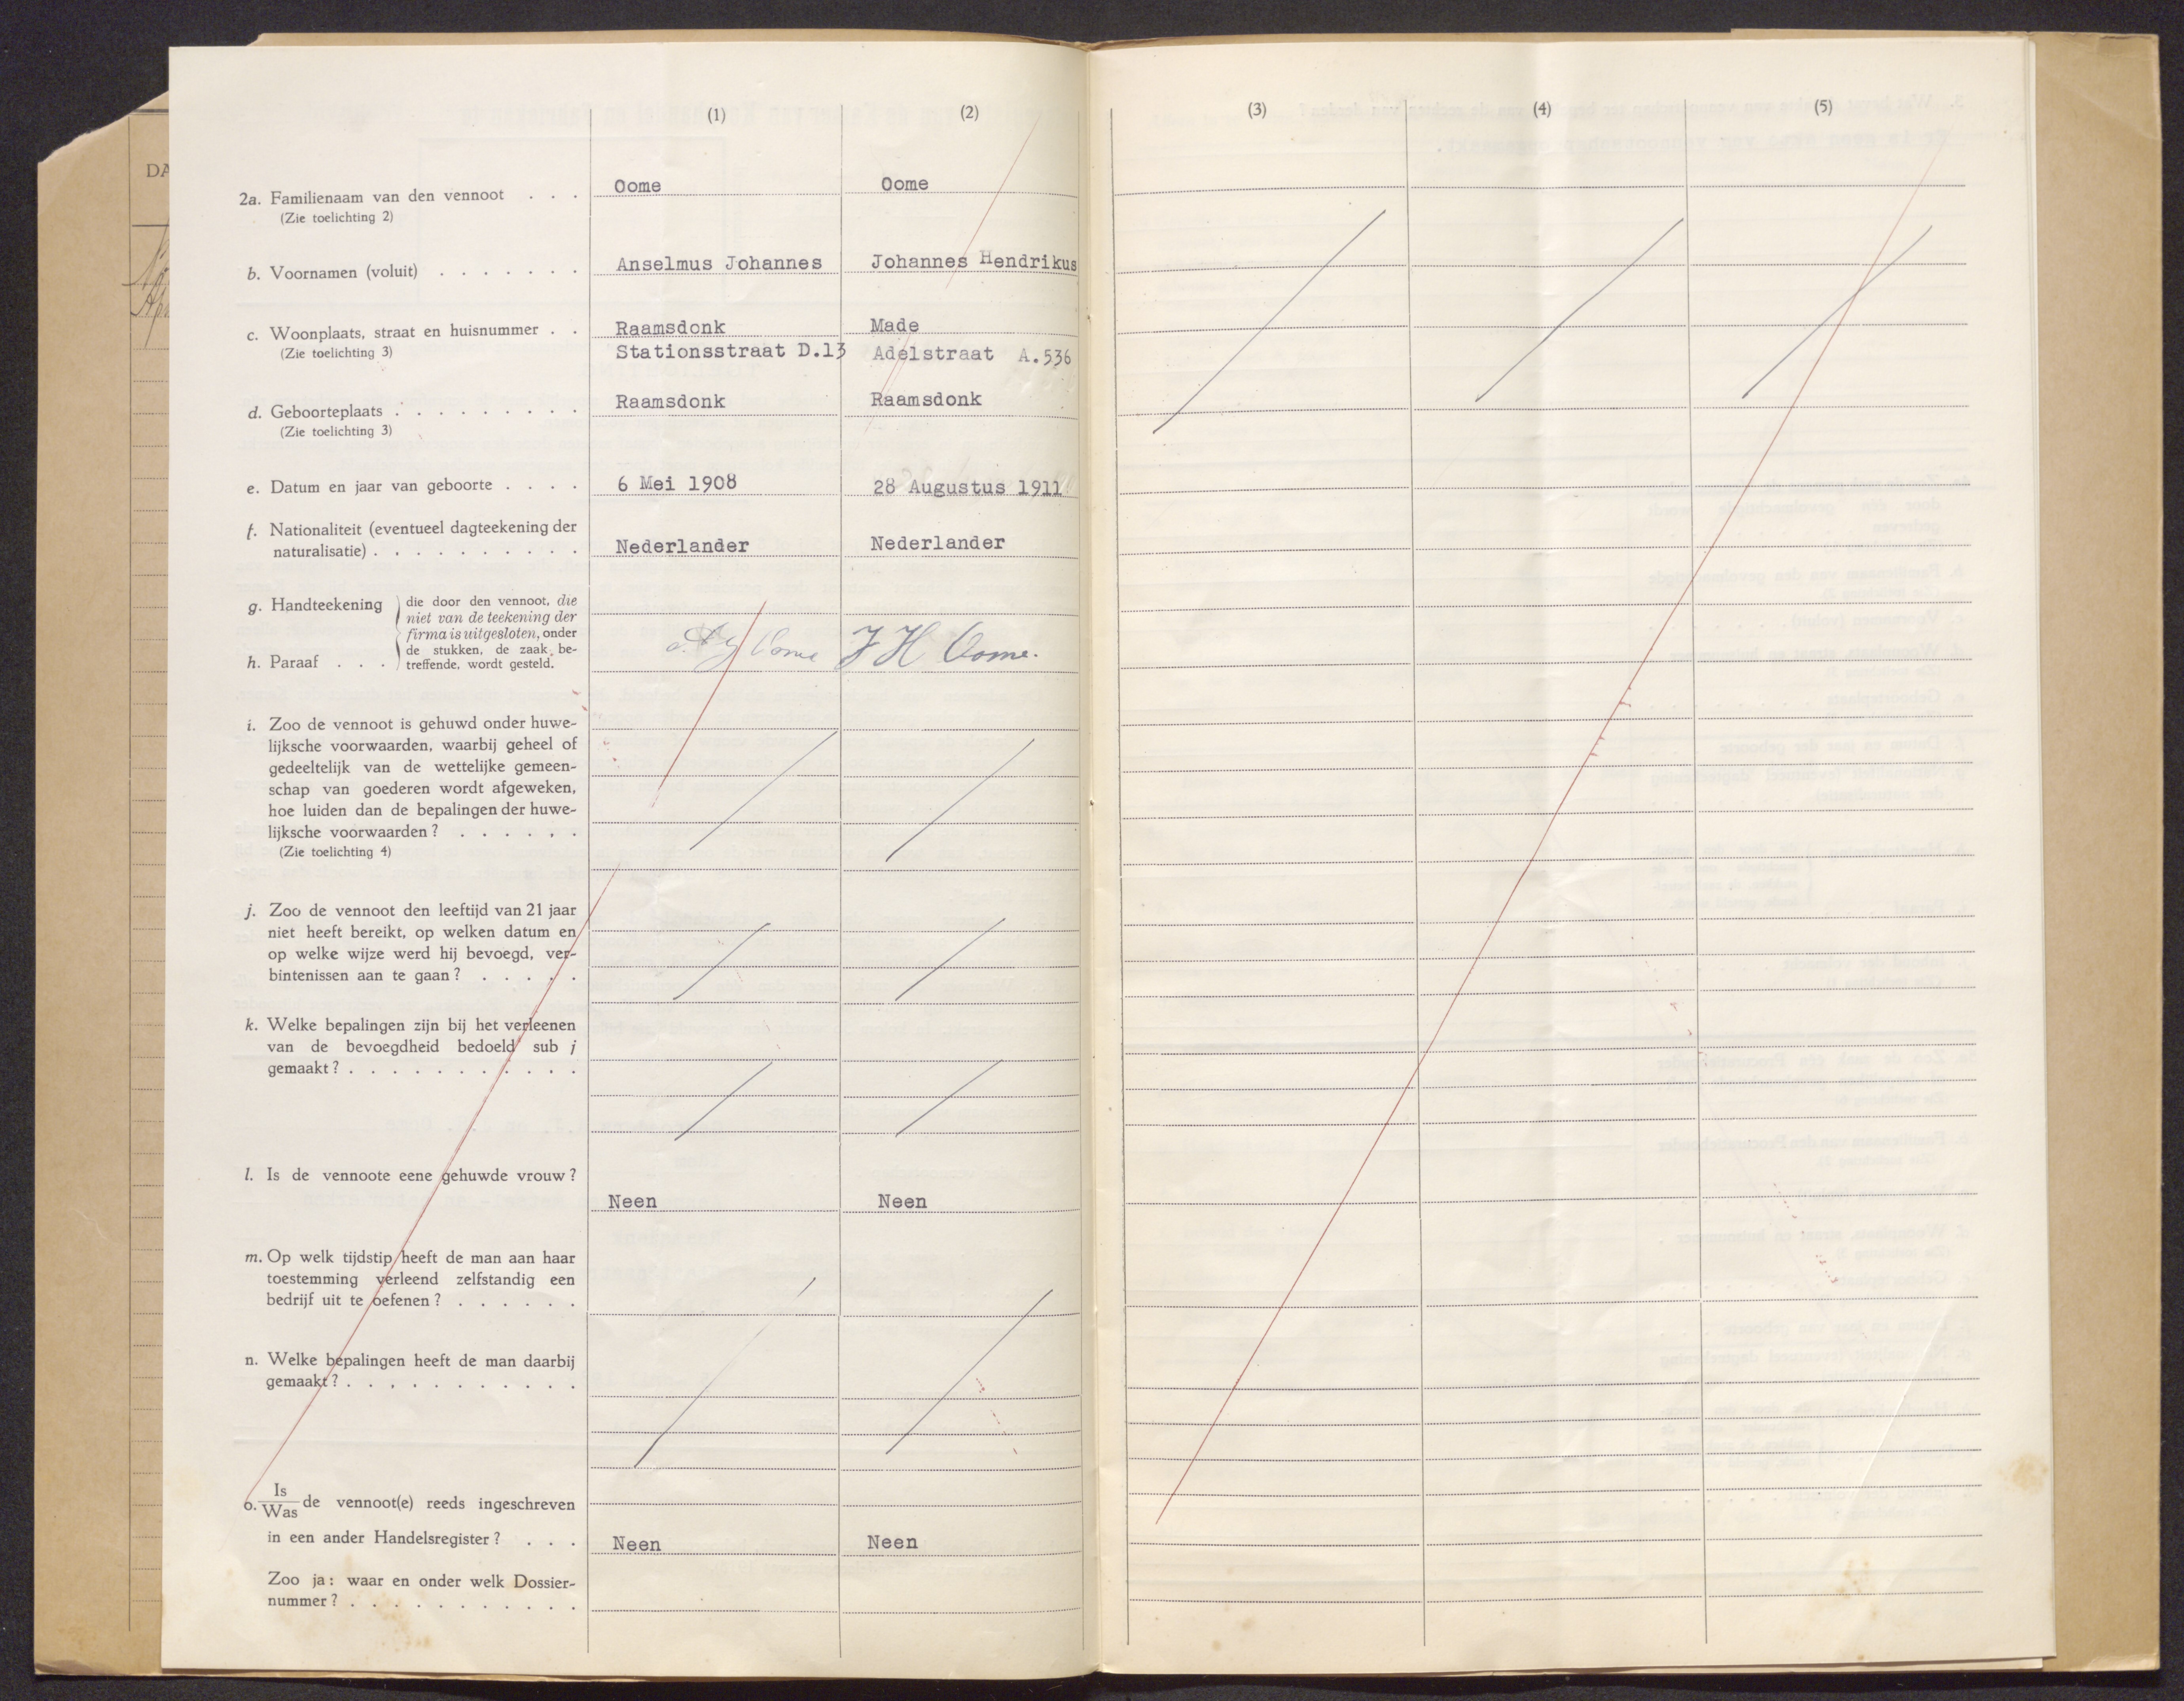 DA
(1) (2) (3) (4) (5)
2a. Familienaam van den vennoot . . . Oome Oome
(Zie toelichting 2)
b. Voornamen (voluit) . . . . . . . Anselmus Johannes Johannes Hendrikus
c. Woonplaats, straat en huisnummer . . Raamsdonk Made
(Zie toelichting 3) Stationsstraat D.13 Adelstraat A.536
d. Geboorteplaats . . . . . . . . . Raamsdonk Raamsdonk
(Zie toelichting 3)
e. Datum en jaar van geboorte . . . . 6 Mei 1908 28 Augustus 1911
f. Nationaliteit (eventueel dagteekening der
naturalisatie) . . . . . . . . . . Nederlander Nederlander
g. Handteekening die door den vennoot, die
niet van de teekening der
firma is uitgesloten, onder
de stukken, de zaak be-
h. Paraaf . . . treffende, wordt gesteld. A J Oome J H Oome.
i. Zoo de vennoot is gehuwd onder huwe-
lijksche voorwaarden, waarbij geheel of
gedeeltelijk van de wettelijke gemeen-
schap van goederen wordt afgeweken,
hoe luiden dan de bepalingen der huwe-
lijksche voorwaarden ? . . . . . .
(Zie toelichting 4)
j. Zoo de vennoot den leeftijd van 21 jaar
niet heeft bereikt, op welken datum en
op welke wijze werd hij bevoegd, ver-
bintenissen aan te gaan ? . . . . .
k. Welke bepalingen zijn bij het verleenen
van de bevoegdheid bedoeld sub j
gemaakt ? . . . . . . . . . . .
l. Is de vennoote eene gehuwde vrouw ?
Neen Neen
m. Op welk tijdstip heeft de man aan haar
toestemming verleend zelfstandig een
bedrijf uit te oefenen ? . . . . . .
n. Welke bepalingen heeft de man daarbij
gemaakt ? . . . . . . . . . . .
o. Is
Was de vennoot(e) reeds ingeschreven
in een ander Handelsregister ? . . . Neen Neen
Zoo ja : waar en onder welk Dossier-
nummer ? . . . . . . . . . . .